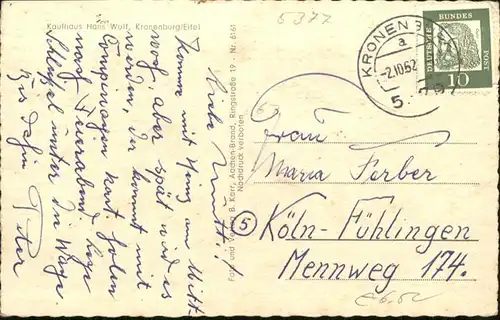 Kaufhaus Hans Wolf, Kronenburg/Eifel
5377
Liebe Mutti!
Komme mit Heinz am Mitt-
woch, aber spät wird es
werden, da kommt mit
nach Feierabend. Lege
Schlüssel unter die Waage.
Bis dahin
Peter
Foto und Verlag B. Korr, Aachen-Brand, Ringstraße 19 · Nr. 6161
Nachdruck verboten
KRONENBURG
a
-2.10.62
DEUTSCHE BUNDESPOST
10
Frau
Maria Ferber
5
Köln-Fühlingen
Mennweg 174.